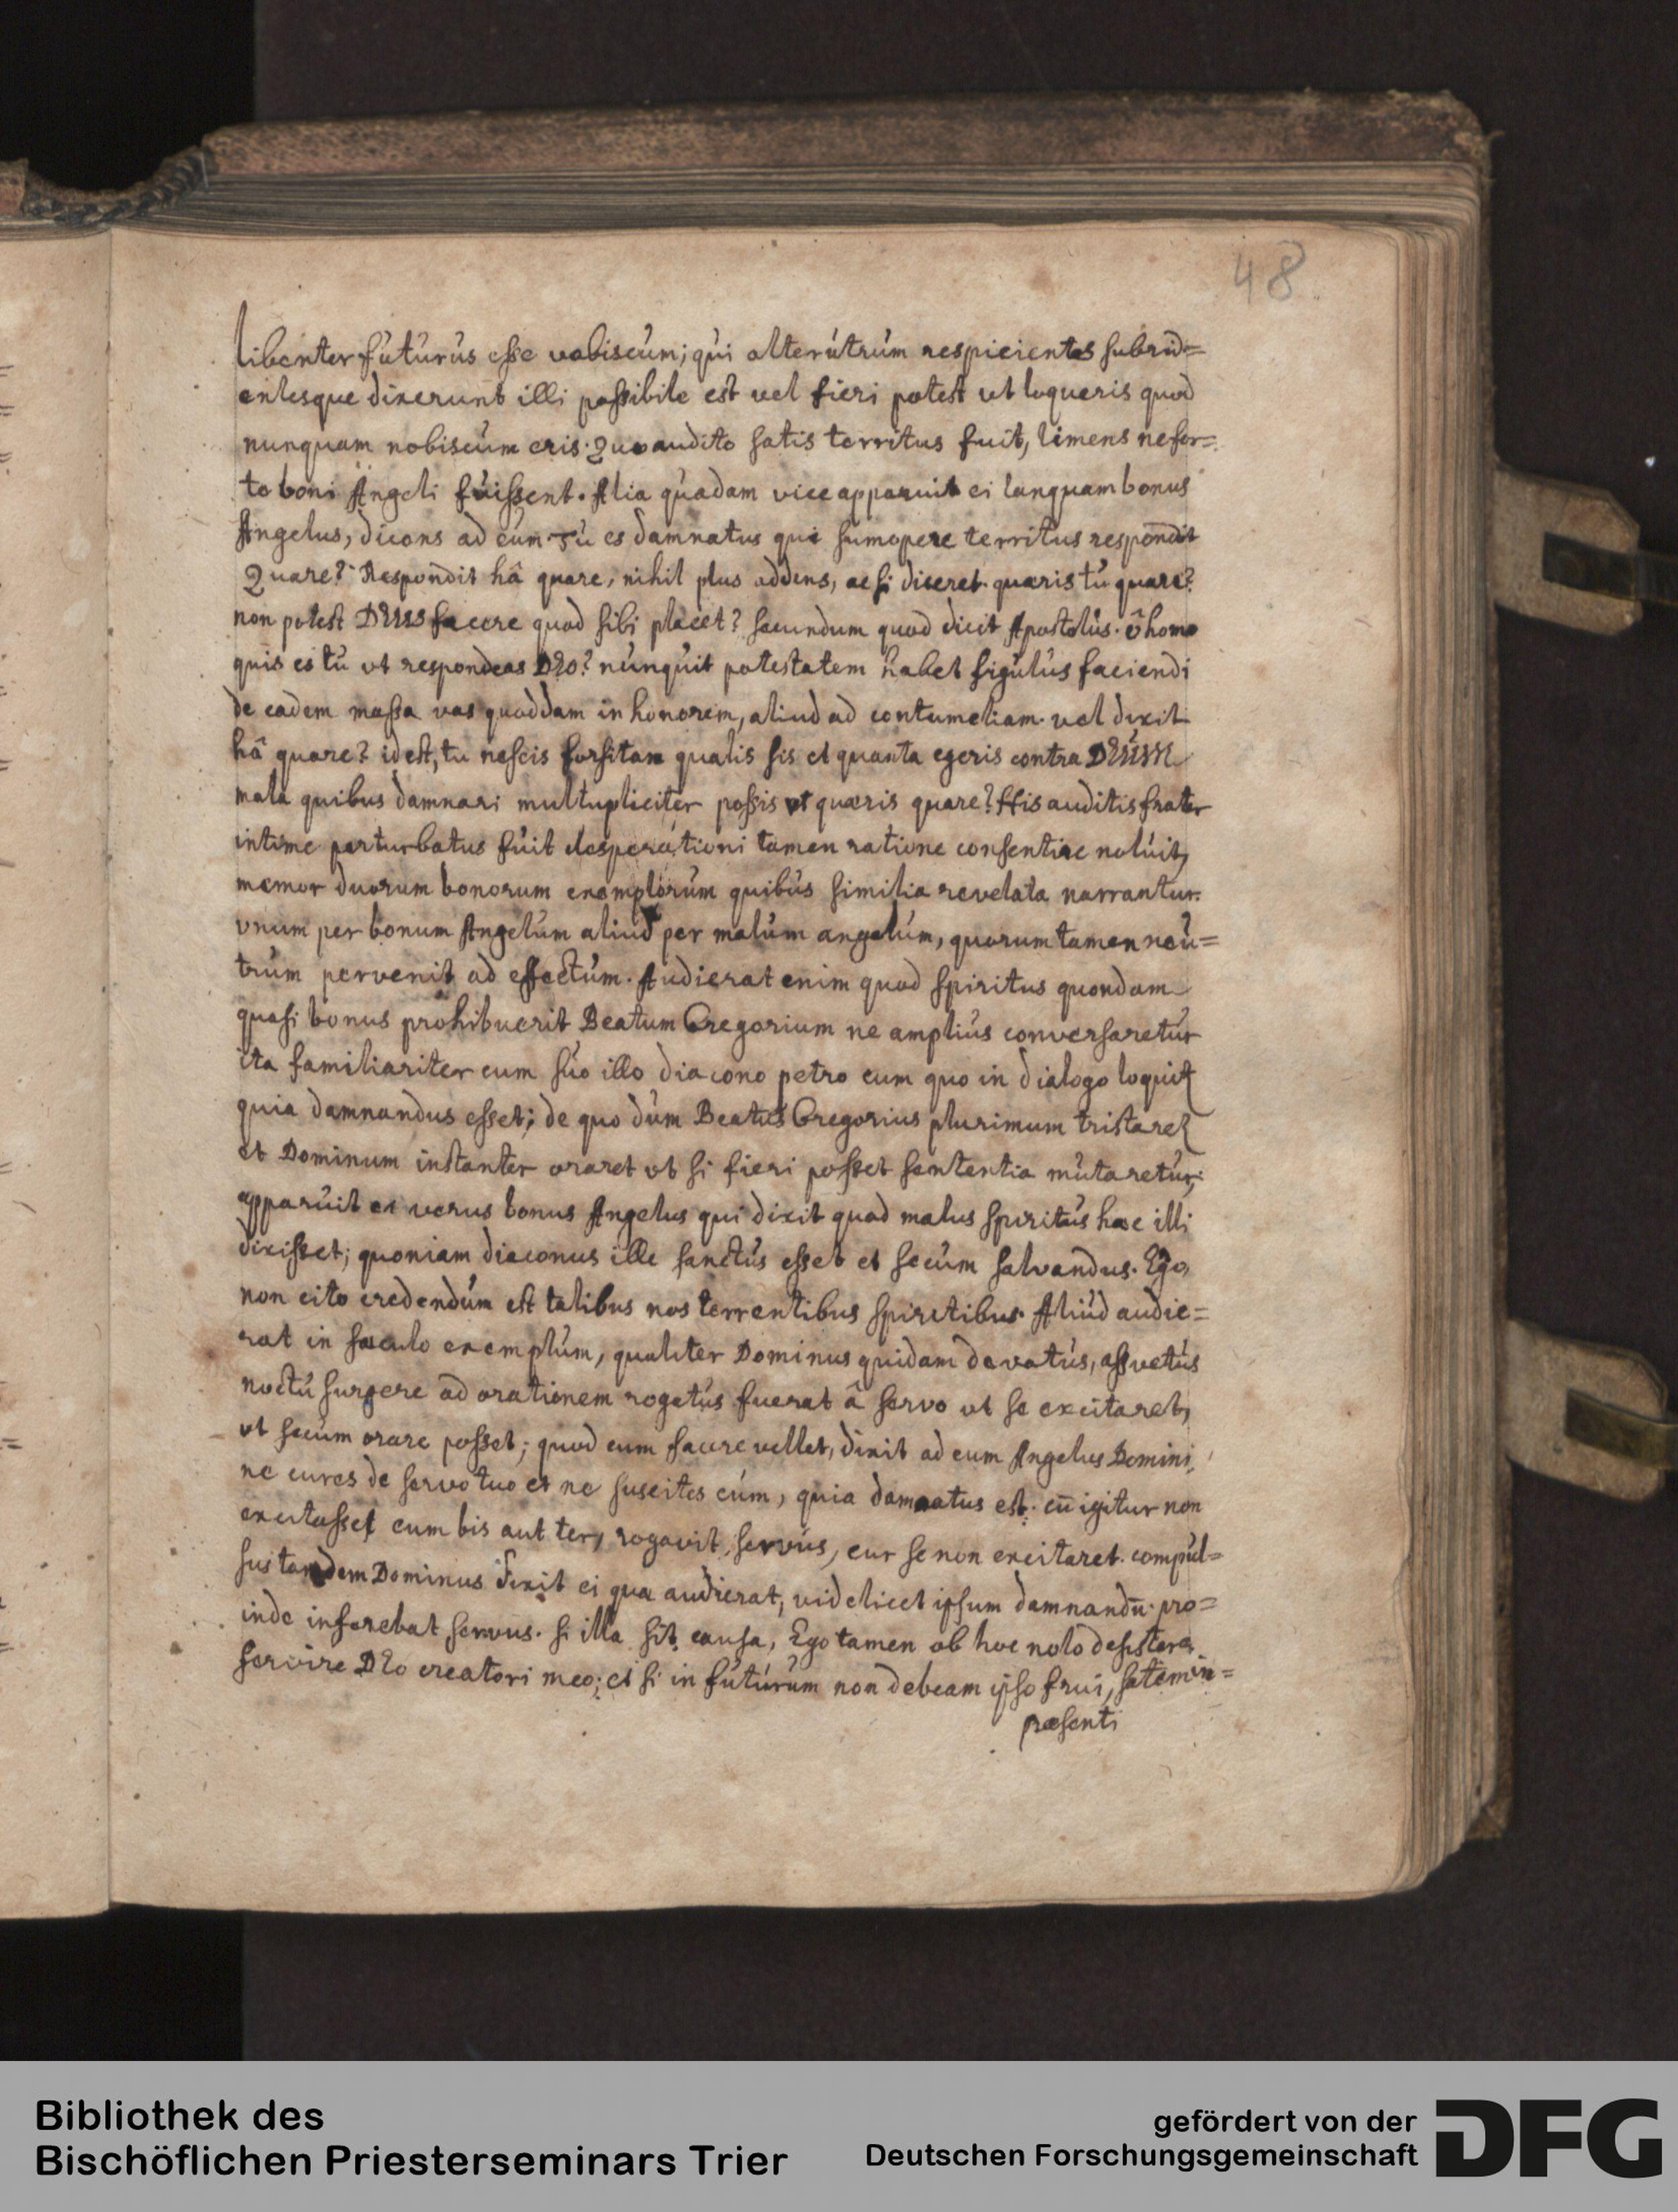 48
libenter futurus esse vobiscum; qui alterutrum respicientes subrid=
entesque dixerunt illi possibile est vel fieri potest ut loqueris quod
nunquam nobiscum eris. Quo audito satis territus fuit, timens ne for=
te boni Angeli fuissent. Alia quadam vice apparuit ei tanquam bonus
Angelus, dicens ad eum. Tu es damnatus qui sumopere territus respondit
Quare? Respondit hâ quare, nihil plus addens, ac si diceret. quæris tu quare?
non potest DEUS facere quod sibi placet? secundum quod dicit Apostolus. ô homo
quis es tu ut respondeas DEO? nunquit potestatem habet figulus faciendi
de eadem massa vas quoddam in honorem, aliud ad contumeliam. vel dixit
hâ quare? id est, tu nescis forsitan qualis sis et quanta egeris contra DEUM
mala quibus damnari multupliciter possis et quæris quare? His auditis frater
intime perturbatus fuit desperationi tamen ratione consentire noluit,
memor duorum bonorum exemplorum quibus similia revelata narrantur.
vnum per bonum Angelum aliud per malum angelum, quorum tamen neu=
trum pervenit ad effectum. Audierat enim quod spiritus quondam
quasi bonus prohibuerit Beatum Gregorium ne amplius conversaretur
ita familiariter cum suo illo diacono petro cum quo in dialogo loquit̄
quia damnandus esset; de quo dum Beatus Gregorius plurimum tristaret̄
et Dominum instanter oraret ut si fieri posset sententia mutaretur;
apparuit ei verus bonus Angelus qui dixit quod malus spiritus hæc illi
dixisset; quoniam diaconus ille sanctus esset et secum salvandus. Ego
non cito credendum est talibus nos terrentibus spiritibus. Aliud audie=
rat in sæculo exemplum, qualiter Dominus quidam devotus, assvetus
noctu surgere ad orationem rogatus fuerat â servo ut se excitaret,
ut secum orare posset; quod cum facere vellet, dixit ad eum Angelus Domini,
ne cures de servo tuo et ne suscites eum, quia damnatus est. cū igitur non
excitasset eum bis aut ter, rogavit servus, cur se non excitaret. compul=
sus tandem Dominus dixit ei qua audierat, videlicet ipsum damnandū. pro=
inde inferebat servus. si illa sit causa, Ego tamen ob hoc nolo desistere
servire DEO creatori meo; et si in futurum non debeam ipso frui, saltem in=
præsenti
Bibliothek des
Bischöflichen Priesterseminars Trier
gefördert von der
Deutschen Forschungsgemeinschaft
DFG